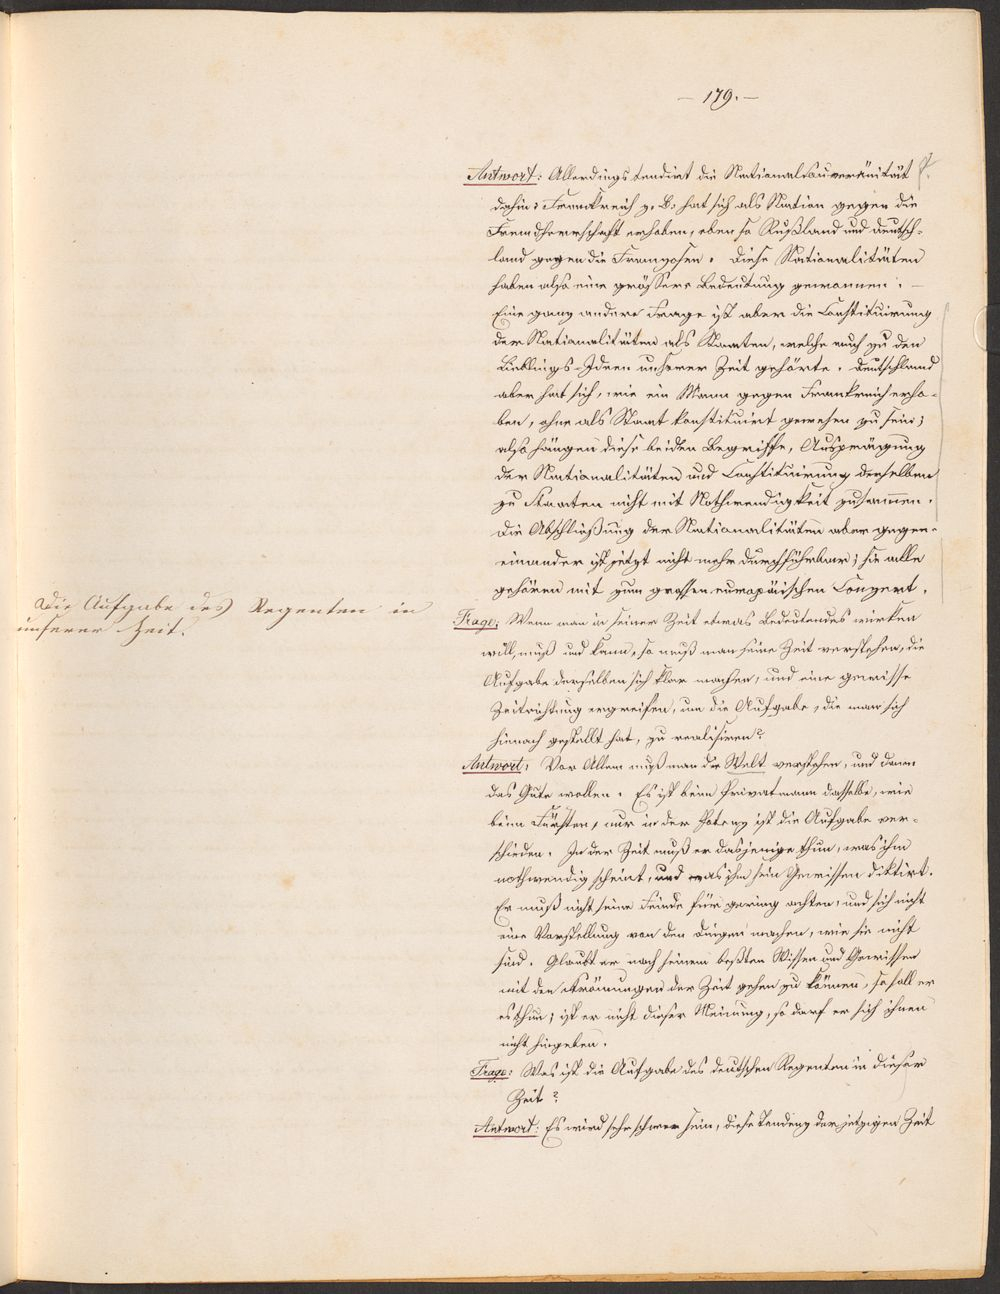 – 179. –
Antwort: Allerdings tendirt die Nationalsouveränität
dahin: Frankreich z. B. hat sich als Nation gegen die
Fremdherrschaft erhoben, eben so Rußland und Deutsch-
land gegen die Franzosen. Diese Nationalitäten
haben also eine grössere Bedeutung gewonnen. –
Eine ganz andere Frage ist aber die Constituirung
der Nationalitäten als Staaten, welche auch zu den
Lieblings-Ideen unserer Zeit gehörte. Deutschland
aber hat sich, wie ein Mann gegen Frankreich erho-
ben, ohne als Staat konstituirt gewesen zu sein;
also hängen diese beiden Begriffe, Ausprägung
der Nationalitäten und Constituirung derselben
zu Staaten nicht mit Nothwendigkeit zusammen.
Die Abschließung der Nationalitäten aber gegen-
einander ist jetzt nicht mehr durchführbar; sie alle
gehören mit zum grossen europäischen Konzert.
Die Aufgabe des Regenten in
unserer Zeit.
Frage: Wenn man in seiner Zeit etwas Bedeutendes wirken
will, muß und kann, so muß man seine Zeit verstehen, die
Aufgabe derselben sich klar machen, und eine gewisse
Zeitrichtung ergreifen, um die Aufgabe, die man sich
hienach gestellt hat, zu realisiren?
Antwort: Vor Allem muß man die Welt verstehen, und dann
das Gute wollen. Es ist beim Privatmann dasselbe, wie
beim Fürsten, nur in der Potenz ist die Aufgabe ver-
schieden. In der Zeit muß er dasjenige thun, was ihm
nothwendig scheint, und was ihm sein Gewissen diktirt.
Er muß nicht seine Feinde für gering achten, und sich nicht
eine Vorstellung von den Dingen machen, wie sie nicht
sind. Glaubt er nach seinem beßten Wissen und Gewissen
mit den Strömungen der Zeit gehen zu können, so soll er
es thun; ist er nicht dieser Meinung, so darf er sich ihnen
nicht hingeben.
Frage: Was ist die Aufgabe des deutschen Regenten in dieser
Zeit?
Antwort: Es wird sehr schwer sein, diese Tendenz der jetzigen Zeit